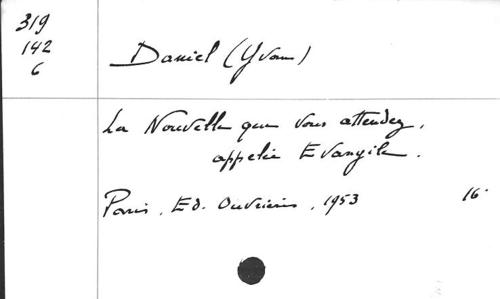 319
142
6
Daniel (Yvan)
La Nouvelle que vous attendez,
appelée Evangile.
Paris, Ed. Ouvrières, 1953 16°